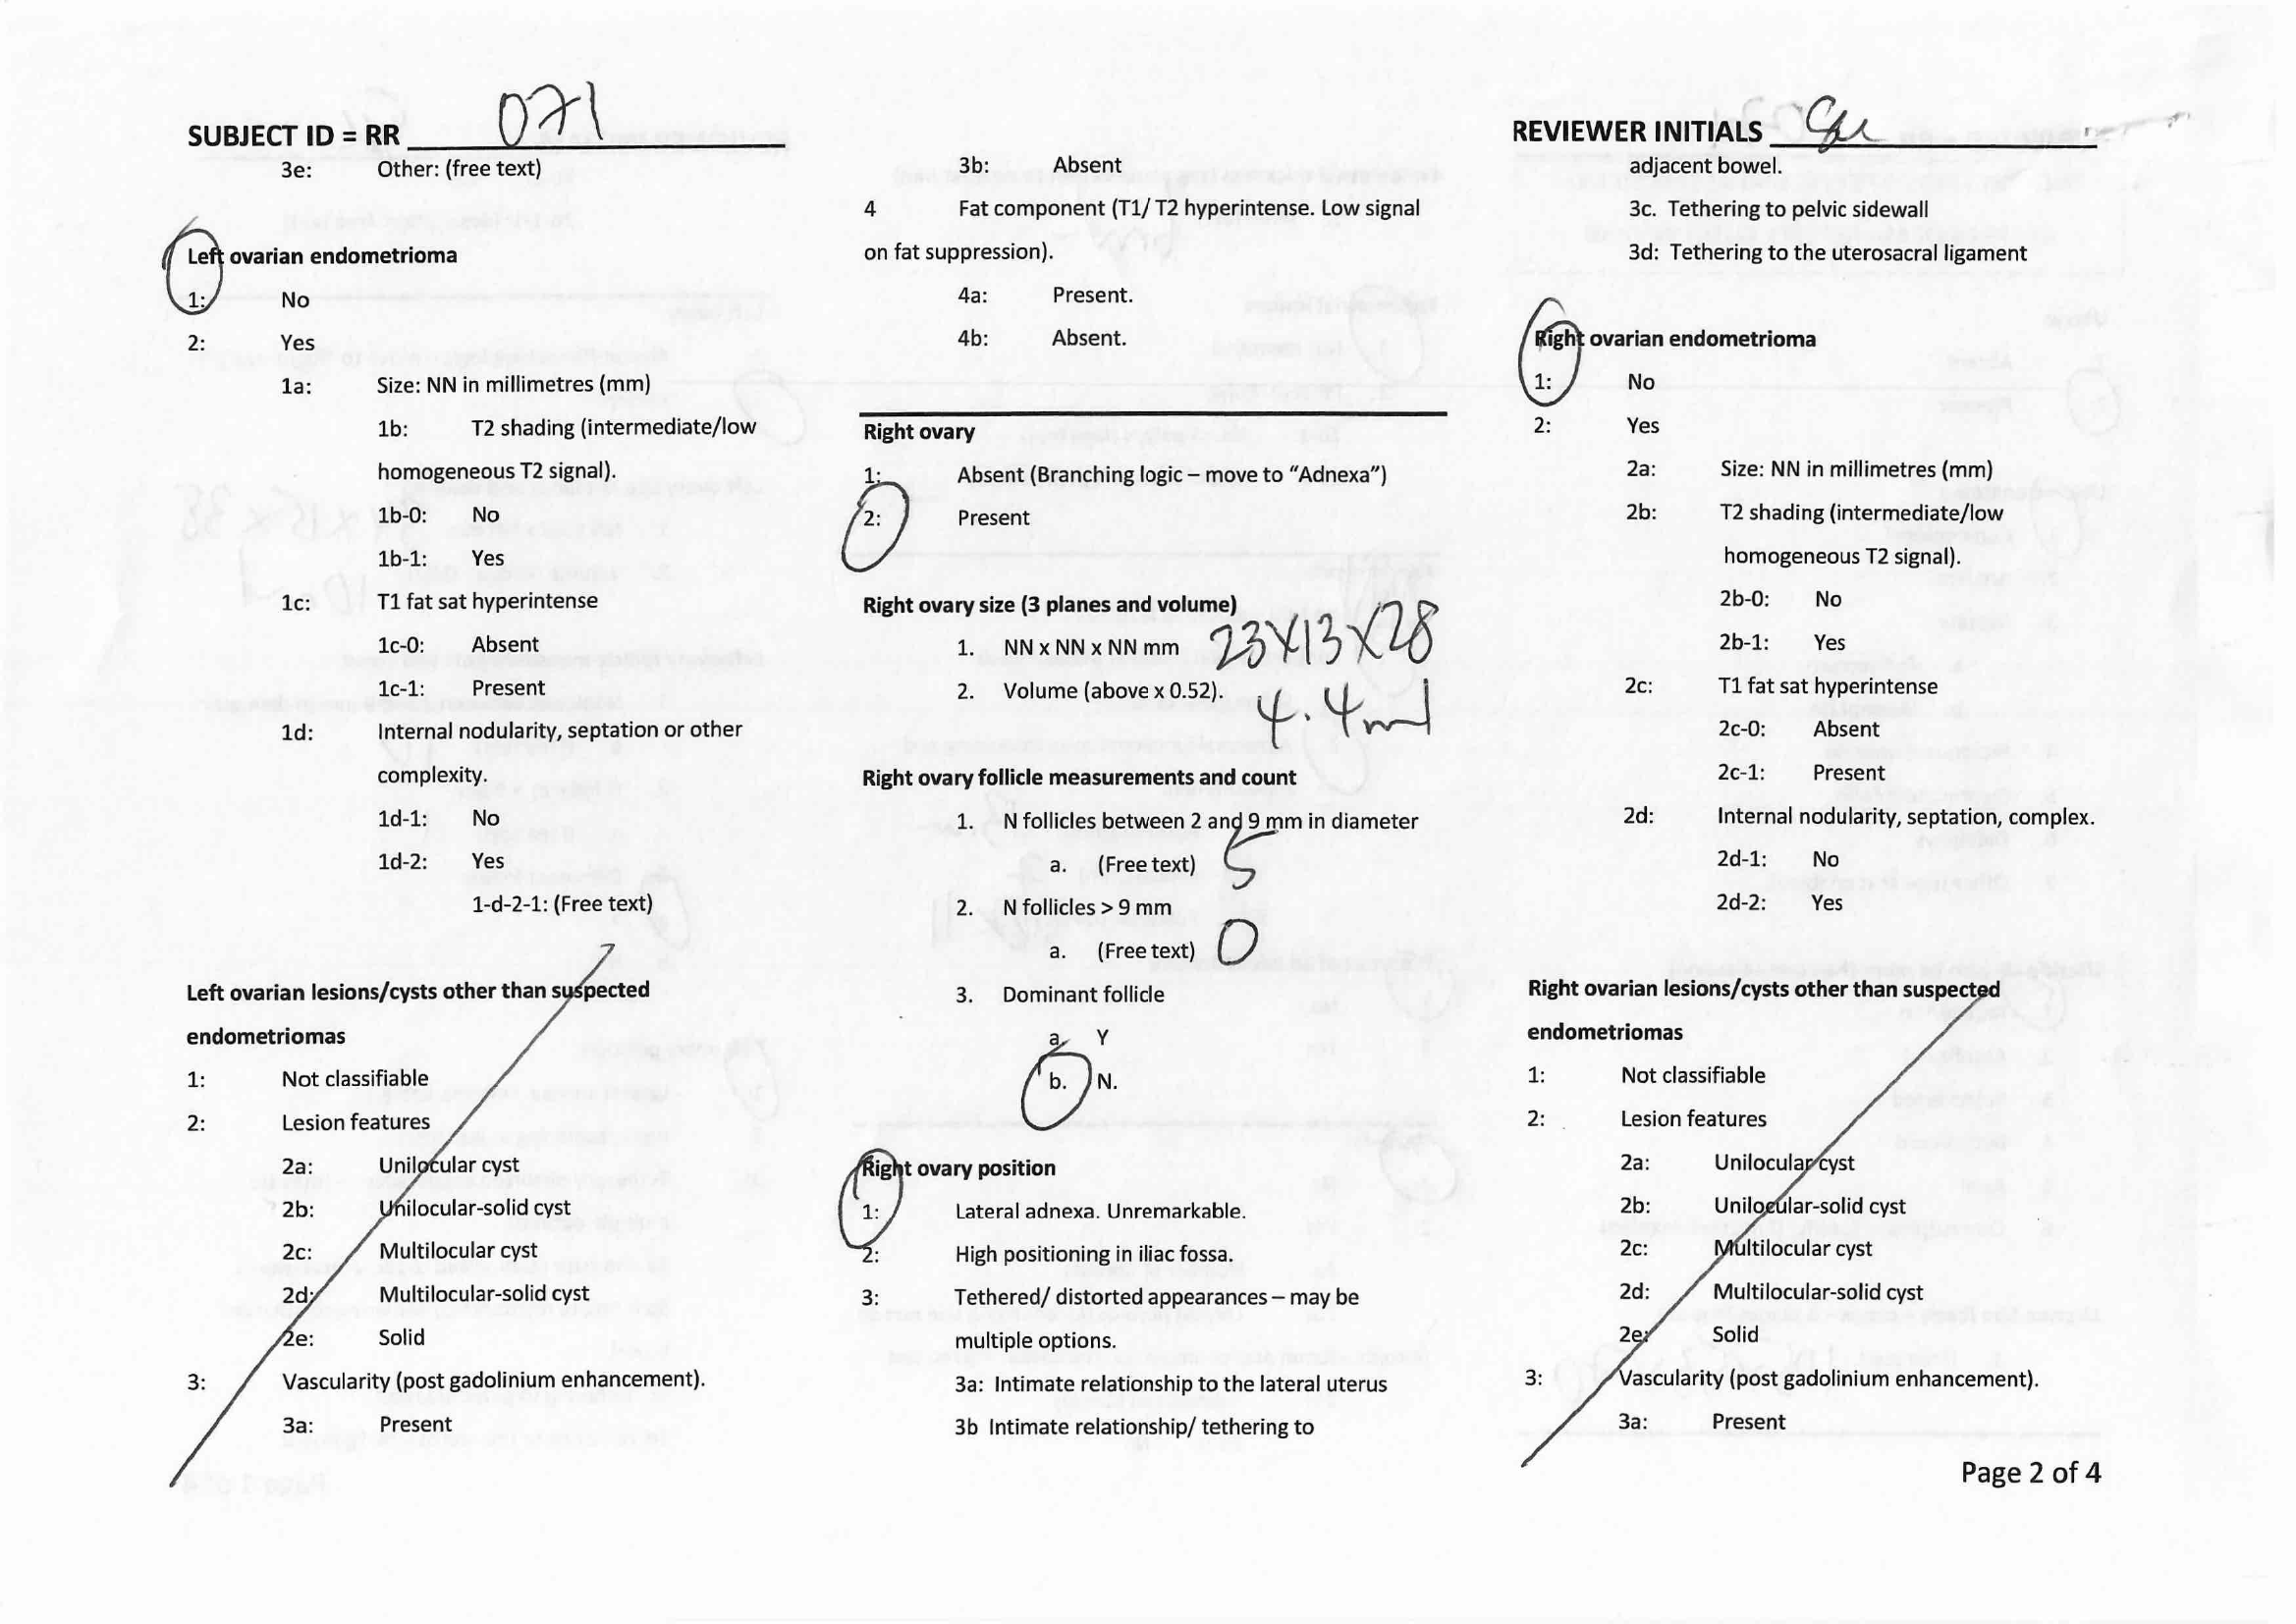 SUBJECT ID = RR 071
3e: Other: (free text)
Left ovarian endometrioma
1: No
2: Yes
1a: Size: NN in millimetres (mm)
1b: T2 shading (intermediate/low
homogeneous T2 signal).
1b-0: No
1b-1: Yes
1c: T1 fat sat hyperintense
1c-0: Absent
1c-1: Present
1d: Internal nodularity, septation or other
complexity.
1d-1: No
1d-2: Yes
1-d-2-1: (Free text)
Left ovarian lesions/cysts other than suspected
endometriomas
1: Not classifiable
2: Lesion features
2a: Unilocular cyst
2b: Unilocular-solid cyst
2c: Multilocular cyst
2d: Multilocular-solid cyst
2e: Solid
3: Vascularity (post gadolinium enhancement).
3a: Present
3b: Absent
4 Fat component (T1/ T2 hyperintense. Low signal
on fat suppression).
4a: Present.
4b: Absent.
Right ovary
1: Absent (Branching logic – move to “Adnexa”)
2: Present
Right ovary size (3 planes and volume)
1. NN x NN x NN mm 23x13x28
2. Volume (above x 0.52). 4.4ml
Right ovary follicle measurements and count
1. N follicles between 2 and 9 mm in diameter
a. (Free text) 5
2. N follicles > 9 mm
a. (Free text) 0
3. Dominant follicle
a. Y
b. N.
Right ovary position
1: Lateral adnexa. Unremarkable.
2: High positioning in iliac fossa.
3: Tethered/ distorted appearances – may be
multiple options.
3a: Intimate relationship to the lateral uterus
3b Intimate relationship/ tethering to
REVIEWER INITIALS
adjacent bowel.
3c. Tethering to pelvic sidewall
3d: Tethering to the uterosacral ligament
Right ovarian endometrioma
1: No
2: Yes
2a: Size: NN in millimetres (mm)
2b: T2 shading (intermediate/low
homogeneous T2 signal).
2b-0: No
2b-1: Yes
2c: T1 fat sat hyperintense
2c-0: Absent
2c-1: Present
2d: Internal nodularity, septation, complex.
2d-1: No
2d-2: Yes
Right ovarian lesions/cysts other than suspected
endometriomas
1: Not classifiable
2: Lesion features
2a: Unilocular cyst
2b: Unilocular-solid cyst
2c: Multilocular cyst
2d: Multilocular-solid cyst
2e: Solid
3: Vascularity (post gadolinium enhancement).
3a: Present
Page 2 of 4